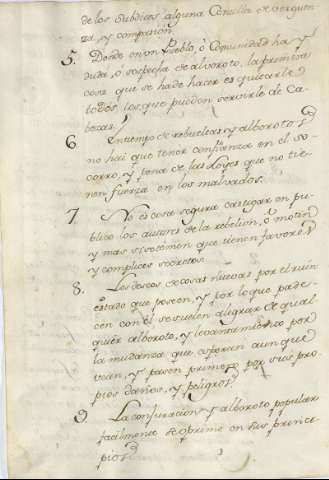 de los Subditos alguna Consulta de verguen
za, y compasion.
5. Donde en un Pueblo, ò Comunidad hay
duda, ò sospecha de alvoroto, la primera
cosa que se ha de hacer es quitarle
todos los que puedan servirle de Ca-
bezas.
6. En tiempo de rebueltas, y alborotos
no hai que tener confianza en el so-
corro, y pena de las Leyes que no tie-
nen fuerza en los malvados.
7. No es cosa segura castigar en pu-
blico los autores de la rebelion, ò motin
y mas si se temen que tienen favores
y complices secretos.
8. Los deseos de cosas nuevas por el ruin
estado que poseen, y por lo que pade-
cen con el se suelen alegrar de qual
quier alboroto, y levantamiento por
la mudanza que esperan aunque
vean, y pasen primero por sus pro-
pios daños, y peligros.
9. La conjuracion, y alboroto popular
facilmente se oprime en sus princi-
pios